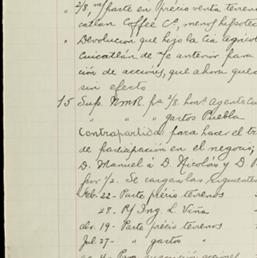 " 2/8, m/ parte en Precio venta terren
catlan Coffee Co, menos hipotec
" Devolucion que hijo la Cia Agric
Cuicatlán de s/c anterior para
ción de acciones, que ahora que
sin efecto
15 Sup. NMR pa 2/8 hons. Agente Cui
" " " gastos Puebla
Contrapartida para hacer el tra
de participación en el negocio,
D. Manuel á D. Nicolás y D. R
por 1/2. Se cargan las siguientes
Feb. 22 - Parte precio terrenos
28. R/ Ing. L. Viña
abr. 19 - Parte precio terrenos
Jul. 27 - " gastos "